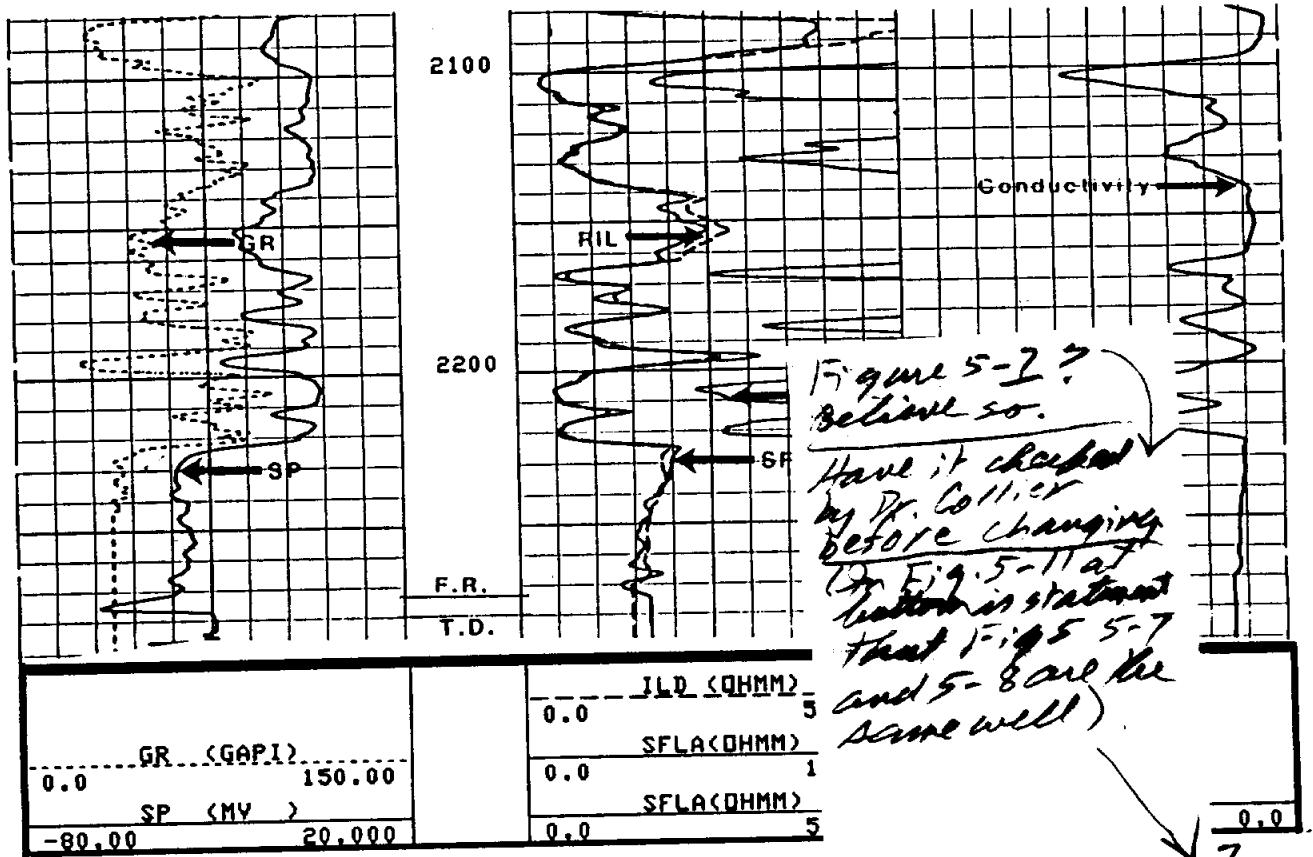 2100
Conductivity
GR
RIL
2200
SP
SF
F.R.
T.D.
Figure 5-7?
Believe so.
Have it checked
by Dr. Collier
before changing
(On Fig. 5-11 at
bottom is statement
that Figs 5-7
and 5-8 are the
same well)
?
GR (GAPI)
0.0 150.00
SP (MV )
-80.00 20.000
ILD (OHMM)
0.0 5
SFLA(OHMM)
0.0 1
SFLA(OHMM)
0.0 5
0.0